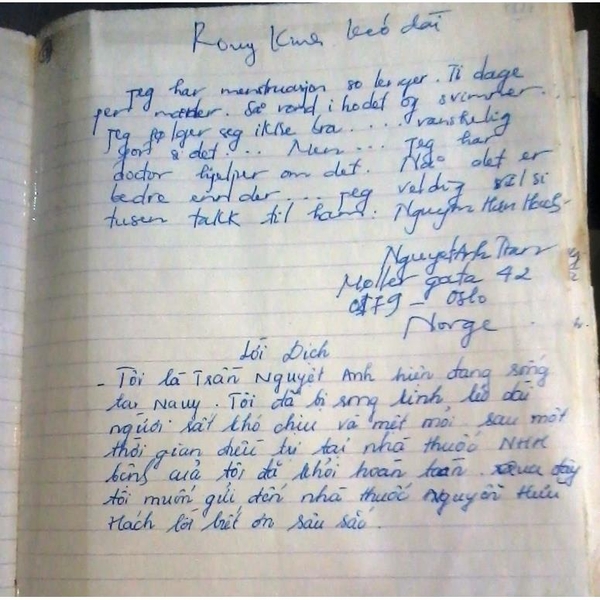 Rong Kinh kéo dài
jeg har menstruasjon so lenger. Ti dage
per måder. Så rond i hodet og svimmer...
jeg følger seg ikke bra.... vanskelig
gort si det... Men.... jeg har
doctor hjelper om det. Nåo det er
bedre enn der.... jeg veldig si
tusen takk til ham. Nguyễn Hữu Hách
Nguyet Anh Tran
Møller gata 42
0179 - Oslo
Norge
Lời Dịch
- Tôi là Trần Nguyệt Anh hiện đang sống
tại Nauy. Tôi đã bị rong kinh kéo dài
người rất khó chịu và mệt mỏi sau một
thời gian điều trị tại nhà thuốc NHH
bệnh của tôi đã khỏi hoan toan. qua đây
tôi muốn gửi đến nhà thuốc Nguyễn Hữu
Hách lời biết ơn sâu sắc.